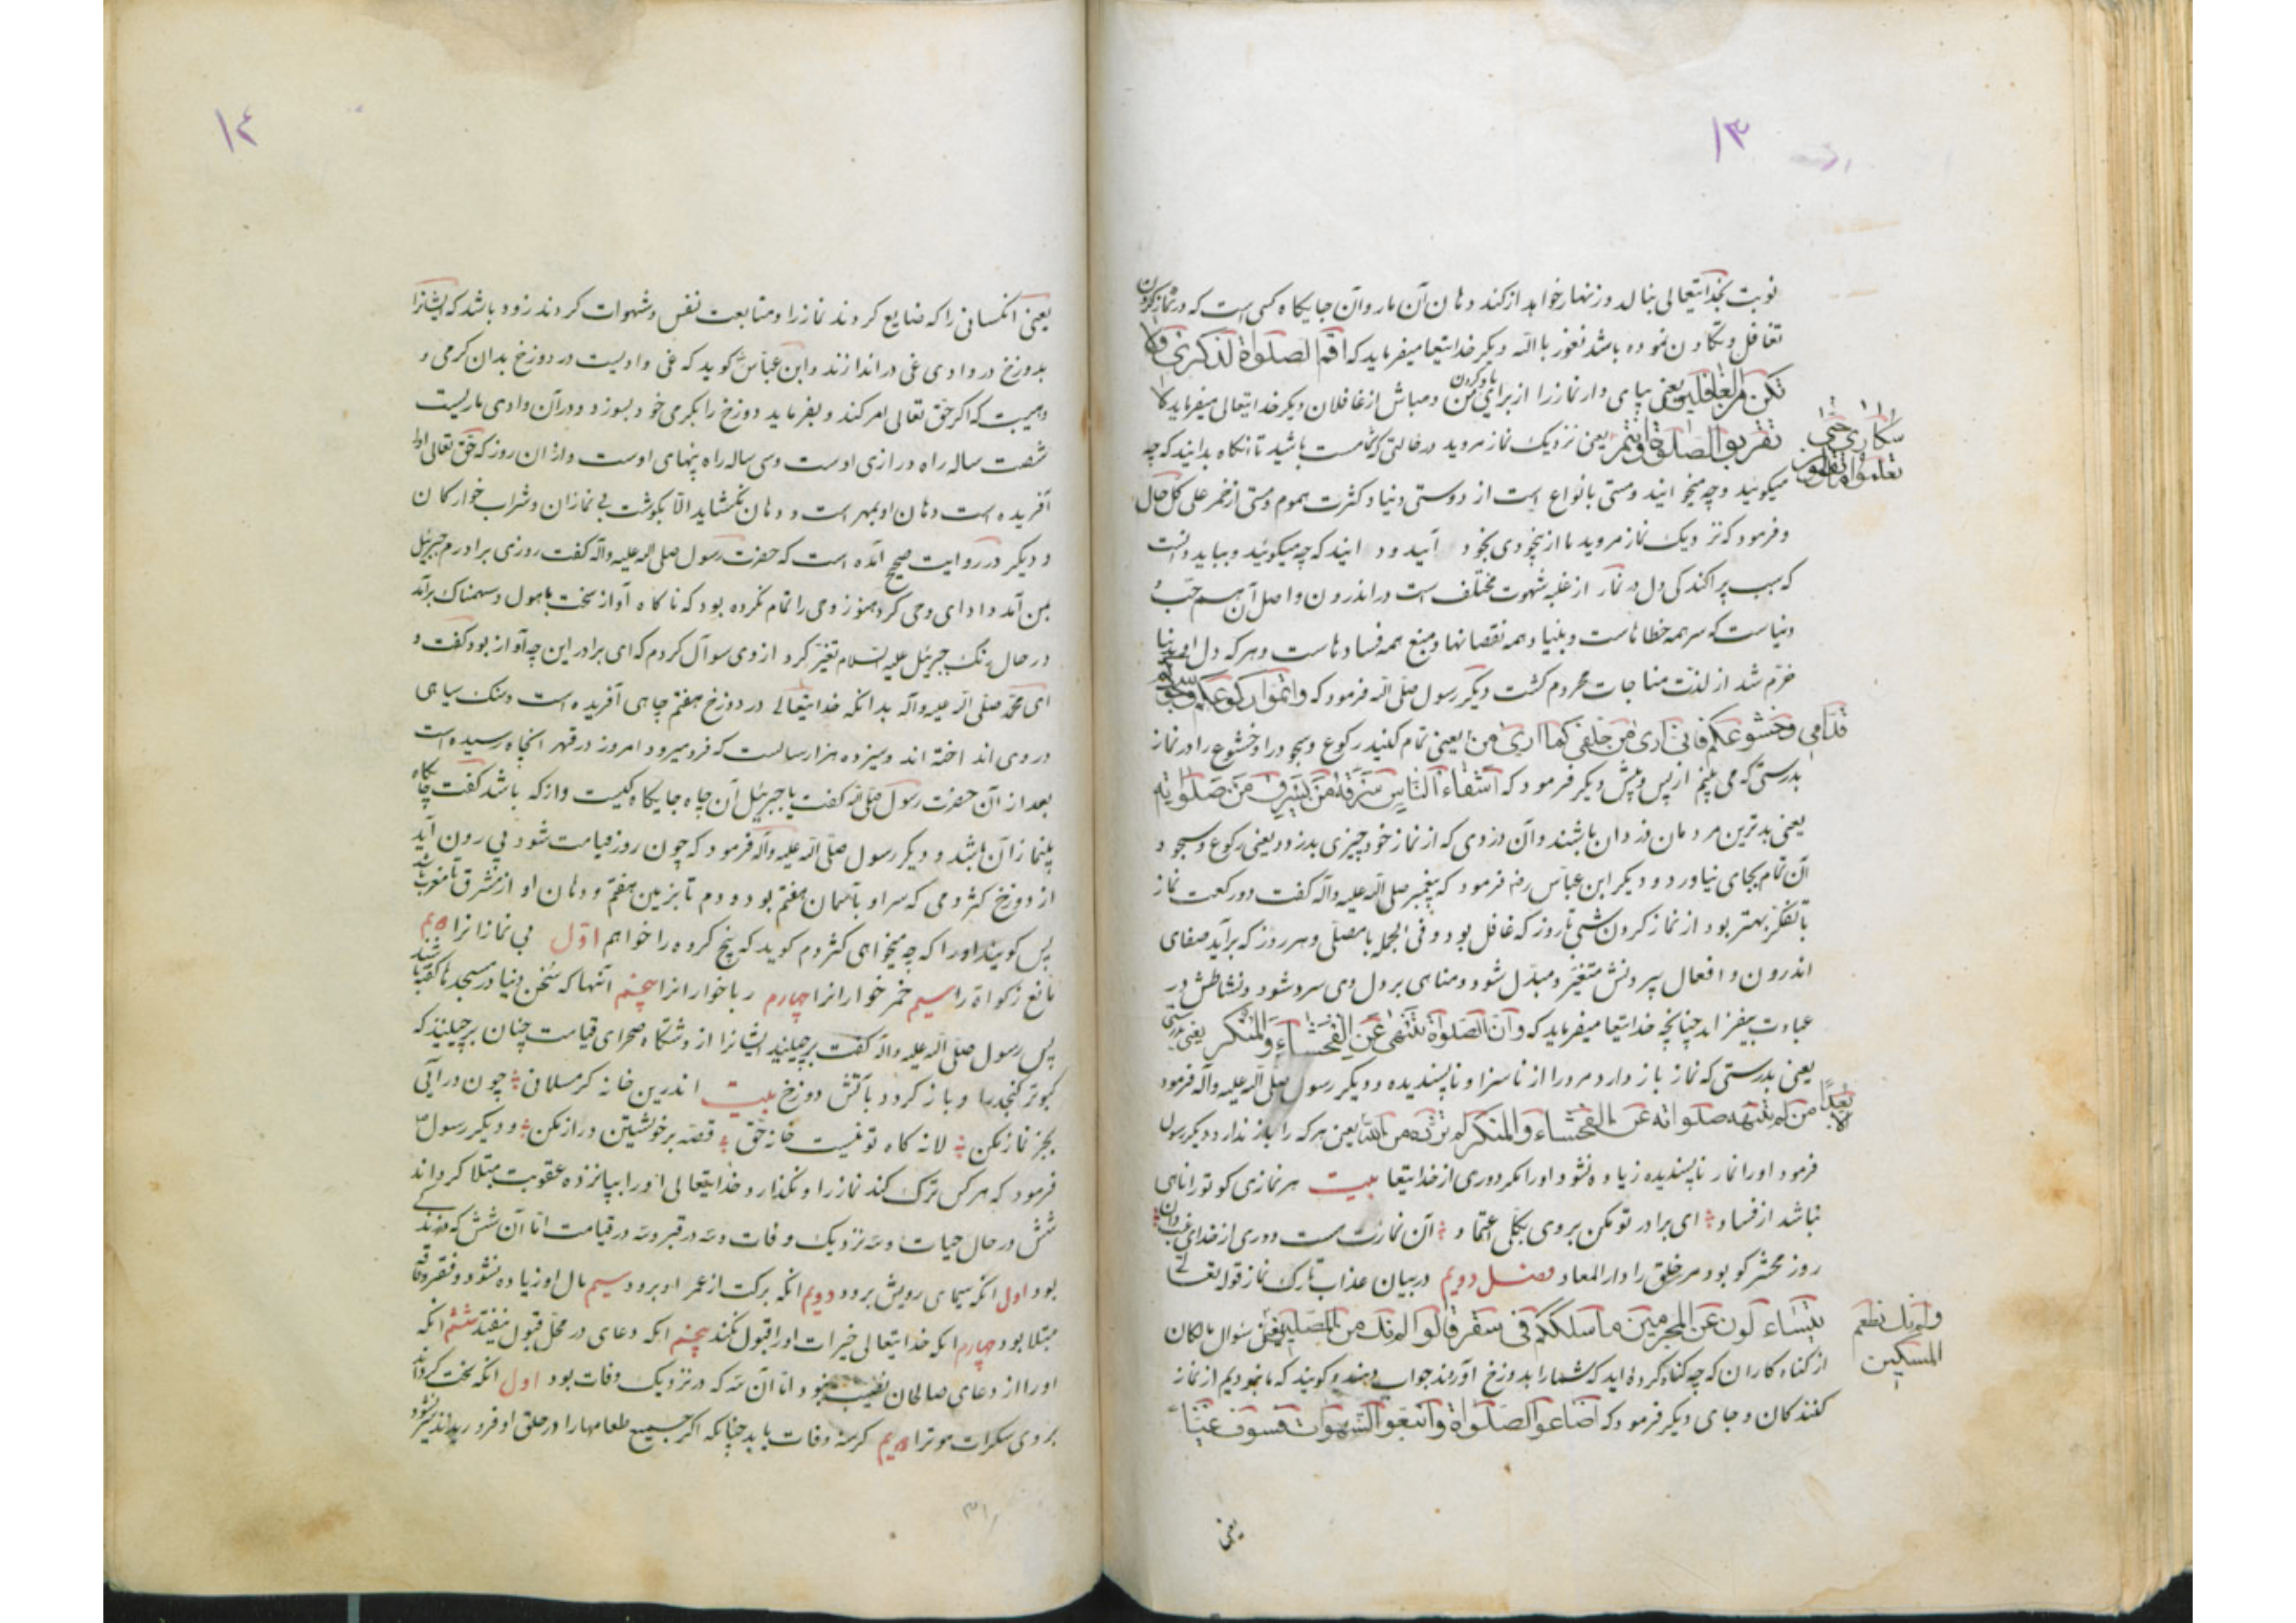 ١٣
نوبت بخدایتعالی بنالد و زنهار خواهد از کند دهان آن مار و آن جایکاه کمی است که در نماز کردن
تغافل و تکاون نموده باشد نعوذ بالله دیکر خدایتعا میفرماید که اقم الصلواة لذکری ولا
تکن من الغافلین یعنی بپای دار نماز را از برای یاد کردن من و مباش از غافلان دیکر خدایتعالی میفرماید لا
تقربوا الصلوة وانتم سکاری حتی تعلموا ما تقولون یعنی نزدیک نماز مروید در حالتی که شما مست باشید تا انکاه بدانید که چه
میکوئید و چه میخوانید و مستی بانواع است از دوستی دنیا و کثرت هموم و مستی از خمر علی کل حال
و فرمود که نزدیک نماز مروید تا از بیخودی بخود آئید و دانید که چه میکوئید و بباید دانست
که سبب پراکندکی دل در نماز از غلبه شهوت مختلف است در اندرون و اصل آن همه حب
دنیاست که سر همه خطاهاست و بنیاد همه نقصانها و منبع همه فسادهاست و هر که دل او بدنیا
خرم شد از لذت مناجات محروم کشت دیکر رسول صلی الله فرمود که واتموا رکوعکم وسجودکم
قدامی وخشوعکم فانی اری من خلفی کما اری من یعنی تمام کنید رکوع و سجود را و خشوع را در نماز
بدرستی که می بینم از پس و پیش دیکر فرمود که اشقاء الناس سرقة من یسرق من صلواته
یعنی بدترین مردمان دزدان باشند و آن دزدی که از نماز خود چیزی بدزدد یعنی رکوع و سجود
آن تمام بجای نیاورد و دیکر ابن عباس رضه فرمود که پیغمبر صلی الله علیه وآله کفت دو رکعت نماز
با تفکر بهتر بود از نماز کردن شبی تا روز که غافل بود و فی الجمله با مصلی و هر روز که برآید صفای
اندرون و افعال بیرونش متغیر و مبدل شود و مناهی بر دل وی سرد شود و نشاطش در
عبادت بیفزاید چنانچه خدایتعا میفرماید که وان الصلواة تنهی عن الفحشاء والمنکر
یعنی بدرستی که نماز باز دارد مرد را از ناسزا و ناپسندیده و دیکر رسول صلی الله علیه وآله فرمود
من لم تنهه صلواته عن الفحشاء والمنکر لم تزده من الله الا بعدا یعنی هر که را باز ندارد دیکر رسول
فرمود او را نماز ناپسندیده زیاده نشود او را مکر دوری از خدایتعا بیت هر نمازی کو تو را ناهی
نباشد از فساد ای برادر تو مکن بر وی بکلی اعتماد آن نمازت هست دوری از خدای غیب دان
روز محشر کو بود مر خلق را دار المعاد فصل دویم در بیان عذاب تارک نماز قوله تعالی
یتساءلون عن المجرمین ما سلککم فی سقر قالوا لم نک من المصلین ولم نک نطعم المسکین یعنی سؤال مالکان
از کناه کاران که چه کناه کرده اید که شما را بدوزخ آوردند جواب دهند و کویند که ما نبودیم از نماز
کنندکان و جای دیکر فرمود که اضاعوا الصلواة واتبعوا الشهوات فسوف غیا
یعنی
١٤
یعنی آنکسانی را که ضایع کردند نماز را و متابعت نفس و شهوات کردند زود باشد که ایشانرا
بدوزخ در وادی غی دراندازند و ابن عباس کوید که غی وادیست در دوزخ بدان کرمی و
وهیبت که اکر حق تعالی امر کند و بفرماید دوزخ را بکرمی خود بسوزد و در آن وادی ماریست
شصت ساله راه درازی اوست و سی ساله راه پنهای اوست و از ان روز که حق تعالی او را
آفریده است دهان او بمهر است و دهان نکشاید الا بکوشت بی نمازان و شراب خوارکان
و دیکر در روایت صحیح آمده است که حضرت رسول صلی الله علیه وآله کفت روزی برادرم جبرئیل
بمن آمد و ادای وحی کرد هنوز وحی را تمام نکرده بود که ناکاه آواز سخت باهول و سهمناک برآمد
در حال رنک جبرئیل علیه السلام تغیر کرد از وی سوآل کردم که ای برادر این چه آواز بود کفت و
ای محمد صلی الله علیه وآله بدانکه خدایتعالی در دوزخ هفتم چاهی آفریده است و سنک سیاهی
در وی انداخته اند و سیزده هزار سالست که فرو میرود امروز در قهر آنچاه رسیده است
بعد از آن حضرت رسول صلی الله کفت یا جبرئیل آن چاه جایکاه کیست و از که باشد کفت جایکاه
بینمازان باشد و دیکر رسول صلی الله علیه وآله فرمود که چون روز قیامت شود بیرون آید
از دوزخ کژدمی که سر او بآسمان هفتم بود و دم تا بزمین هفتم و دهان او از مشرق تا مغرب باشد
پس کویند او را که چه میخواهی کژدم کوید که پنج کروه را خواهم اول بی نمازانرا دویم
مانع زکواة را سیم خمر خوارانرا چهارم رباخوارانرا پنجم آنها که سخن دنیا در مسجدها کفته باشند
پس رسول صلی الله علیه وآله کفت برچینید ایشانرا از دشتکاه صحرای قیامت چنان برچینند که
کبوتر کنجد را و باز کردد بآتش دوزخ بیت اندرین خانه کر مسلمانی چون درآئی
بجز نماز مکن لانه کاه تو نیست خانه حق قصه بر خویشتن دراز مکن و دیکر رسول ص
فرمود که هر کس ترک کند نماز را و نکذارد خدایتعالی او را بپانزده عقوبت مبتلا کرداند
شش در حال حیات و سه نزدیک وفات و سه در قبر و سه در قیامت اما آن شش که در زندکی
بود اول آنکه سیمای رویش برود دویم آنکه برکت از عمر او برود سیم مال او زیاده نشود و بفقر و فاقه
مبتلا بود چهارم آنکه خدایتعالی خیرات او را قبول نکند پنجم آنکه دعای در محل قبول نیفتد ششم آنکه
او را از دعای صالحان نصیب نبود اما آن سه که در نزدیک وفات بود اول آنکه سخت کرداند
بر وی سکرات موترا دویم کرسنه وفات یابد چنانکه اکر جمیع طعامها را در حلق او فرو ریزند سیر نشود